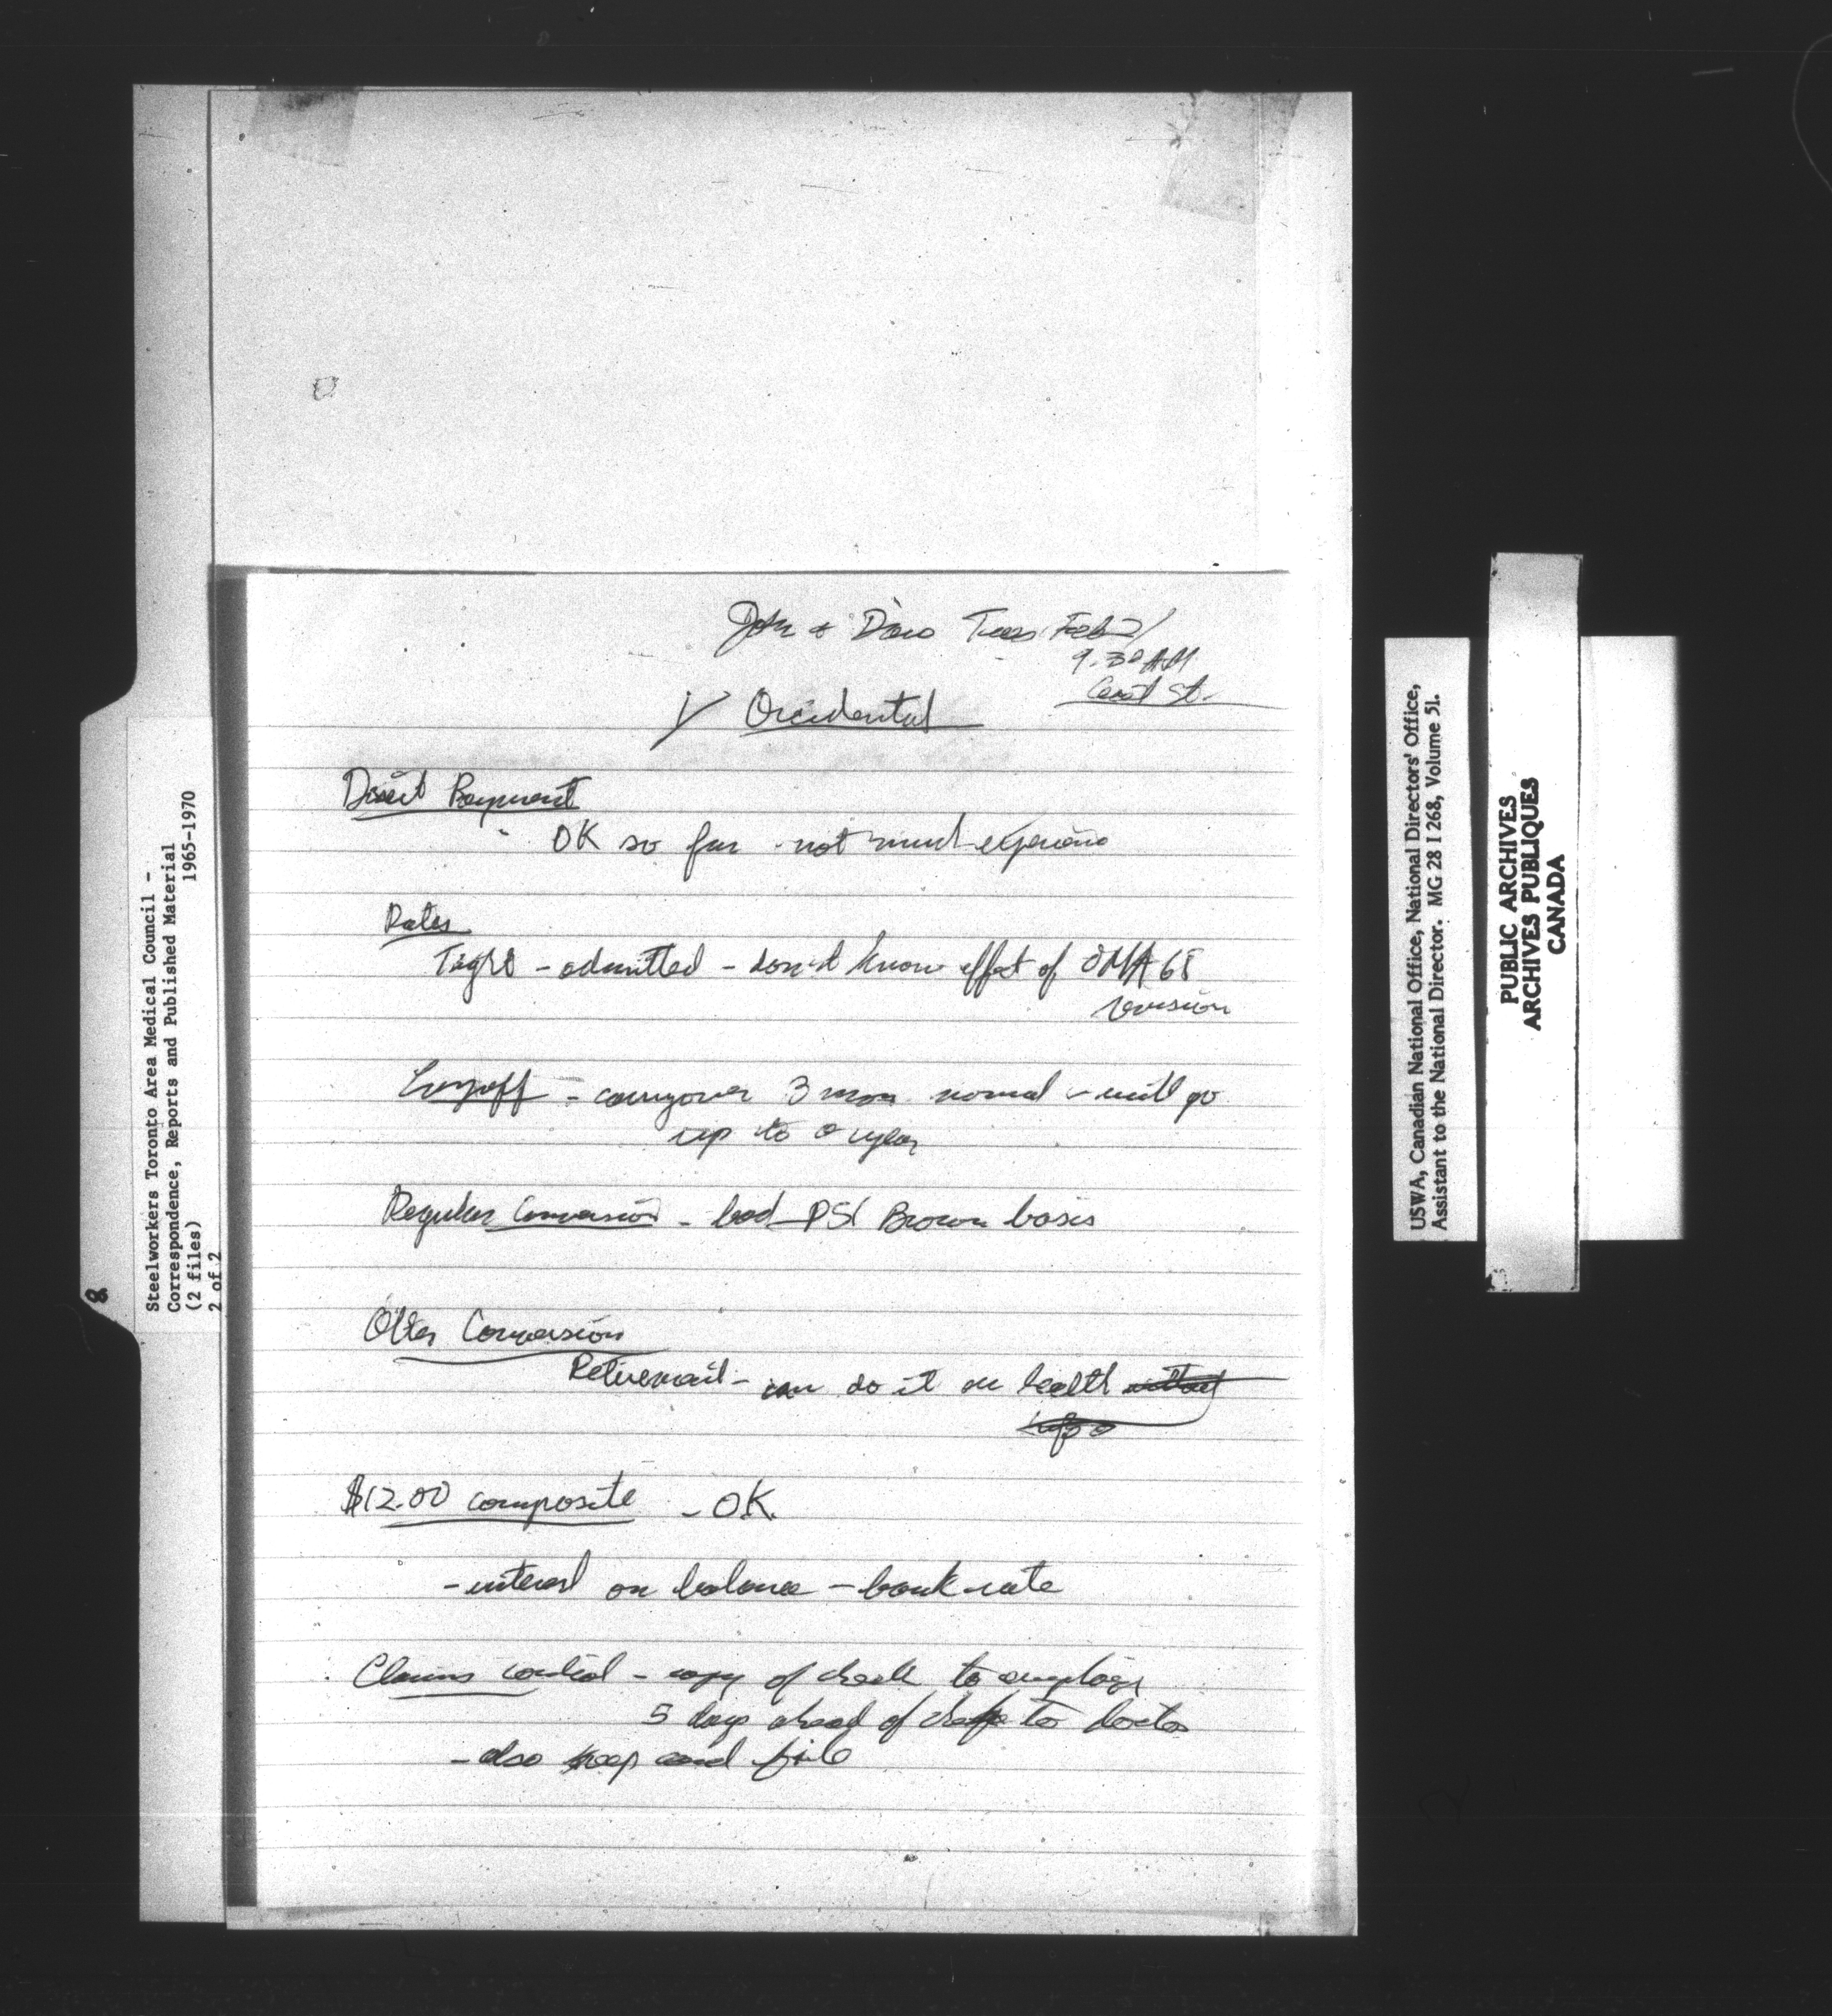 John + Dave Tues Feb 21
9.30 AM
St.
✓ Occidental
Direct Payment
OK so far - not much experience
Rates
Tight - admitted - don't know effect of OMA 68
revision
Layoff - carryover 3 mos normal - will go
up to a year
Regular Conversion - bad PSI Brown basis
Other Conversion
Retirement - can do it on health without
info
$12.00 composite - OK
- interest on balance - bank rate
Claims control - copy of check to employer
5 days ahead of check to doctor
- also keep card file
8
Steelworkers Toronto Area Medical Council -
Correspondence, Reports and Published Material
(2 files) 1965-1970
2 of 2
USWA, Canadian National Office, National Directors' Office,
Assistant to the National Director. MG 28 I 268, Volume 51.
PUBLIC ARCHIVES
ARCHIVES PUBLIQUES
CANADA